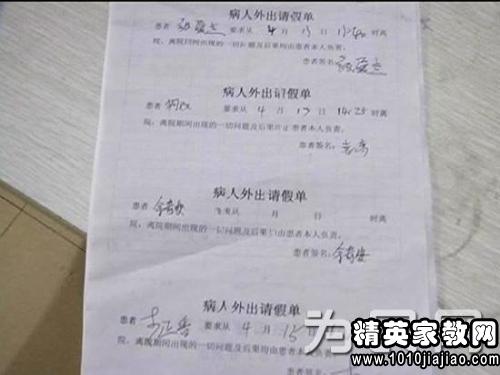 病人外出请假单
患者 要求从 4 月 13 日 时离
院,离院期间出现的一切问题及后果均由患者本人负责。
患者签名:
病人外出请假单
患者 要求从 4 月 13 日 14:25 时离
院,离院期间出现的一切问题及后果均由患者本人负责。
患者签名:
病人外出请假单
患者 要求从 月 日 时离
院,离院期间出现的一切问题及后果均由患者本人负责。
患者签名:
病人外出请假单
患者 要求从 4 月 13 日
院,离院期间出现的一切问题及后果均由患者本人负责
患者签名:
精英家教网
www.1010jiajiao.com